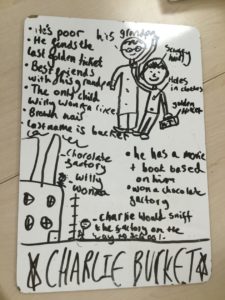 • it's poor
• He finds the
last golden ticket
• Best friends
with his grandpa
• The only child
willy wonka likes
• Brown hair
• last name is bucket
his grandpa
scruffy
hair
Holes
in clothes
golden
ticket
chocolate
factory
willy
wonka
• he has a movie
+ book based
on him
• won a chocolate
factory
• charlie would sniff
the factory on the
way to school
CHARLIE BUCKET